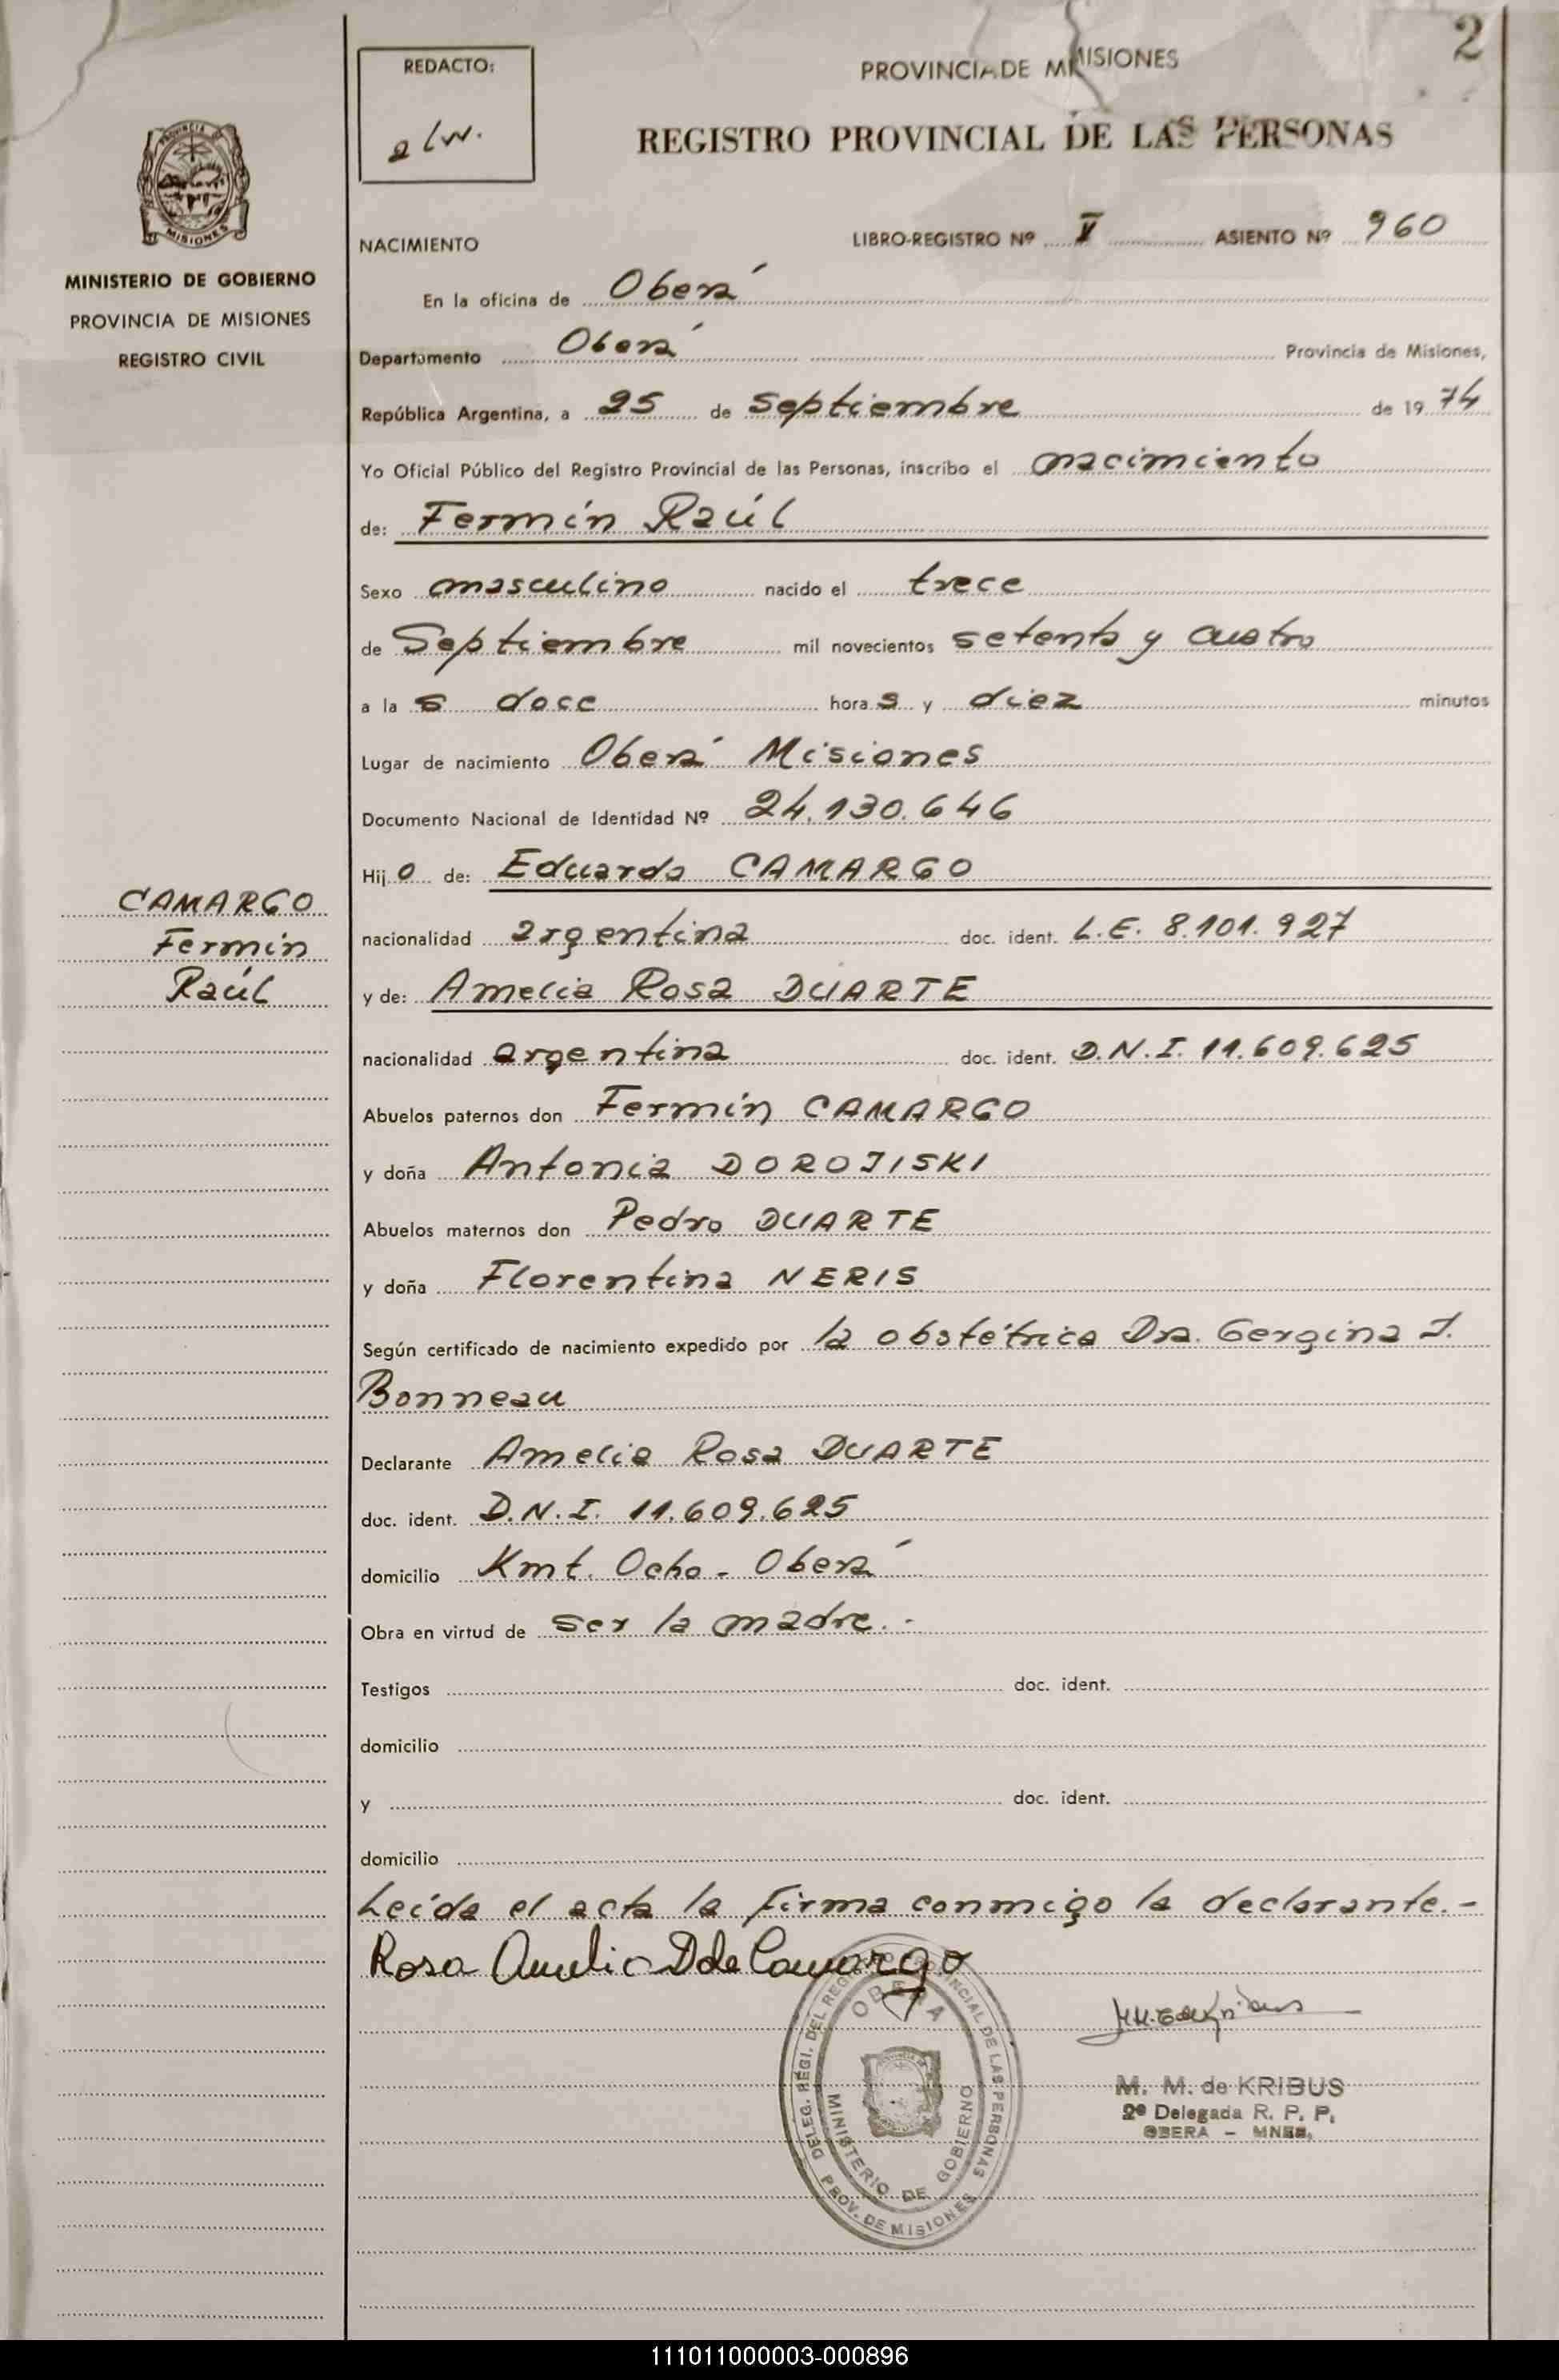 2
REDACTO:
PROVINCIA DE MISIONES
REGISTRO PROVINCIAL DE LAS PERSONAS
MISIONES
MINISTERIO DE GOBIERNO
PROVINCIA DE MISIONES
REGISTRO CIVIL
NACIMIENTO LIBRO-REGISTRO Nº V ASIENTO Nº 960
En la oficina de Oberá
Departamento Oberá Provincia de Misiones,
República Argentina, a 25 de Septiembre de 1974
Yo Oficial Público del Registro Provincial de las Personas, inscribo el nacimiento
de: Fermín Raúl
Sexo masculino nacido el trece
de Septiembre mil novecientos setenta y cuatro
a las doce horas y diez minutos
Lugar de nacimiento Oberá Misiones
Documento Nacional de Identidad Nº 24.130.646
Hijo de: Eduardo CAMARGO
CAMARGO
Fermín
Raúl
nacionalidad argentina doc. ident. L.E. 8.101.927
y de: Amelia Rosa DUARTE
nacionalidad argentina doc. ident. D.N.I. 11.609.625
Abuelos paternos don Fermín CAMARGO
y doña Antonia DOROJISKI
Abuelos maternos don Pedro DUARTE
y doña Florentina NERIS
Según certificado de nacimiento expedido por la obstétrica Dra. Gergina J.
Bonneau
Declarante Amelia Rosa DUARTE
doc. ident. D.N.I. 11.609.625
domicilio Kmt. Ocho - Oberá
Obra en virtud de ser la madre.-
Testigos doc. ident.
domicilio
y doc. ident.
domicilio
Leída el acta la firma conmigo la declarante.-
Rosa Amelia D de Camargo
DELEG. REGI. DEL REGISTRO PROVINCIAL DE LAS PERSONAS
OBERA
MINISTERIO DE GOBIERNO
PROV. DE MISIONES
M. M. de KRIBUS
2ª Delegada R. P. P.
OBERA - MNES.
111011000003-000896